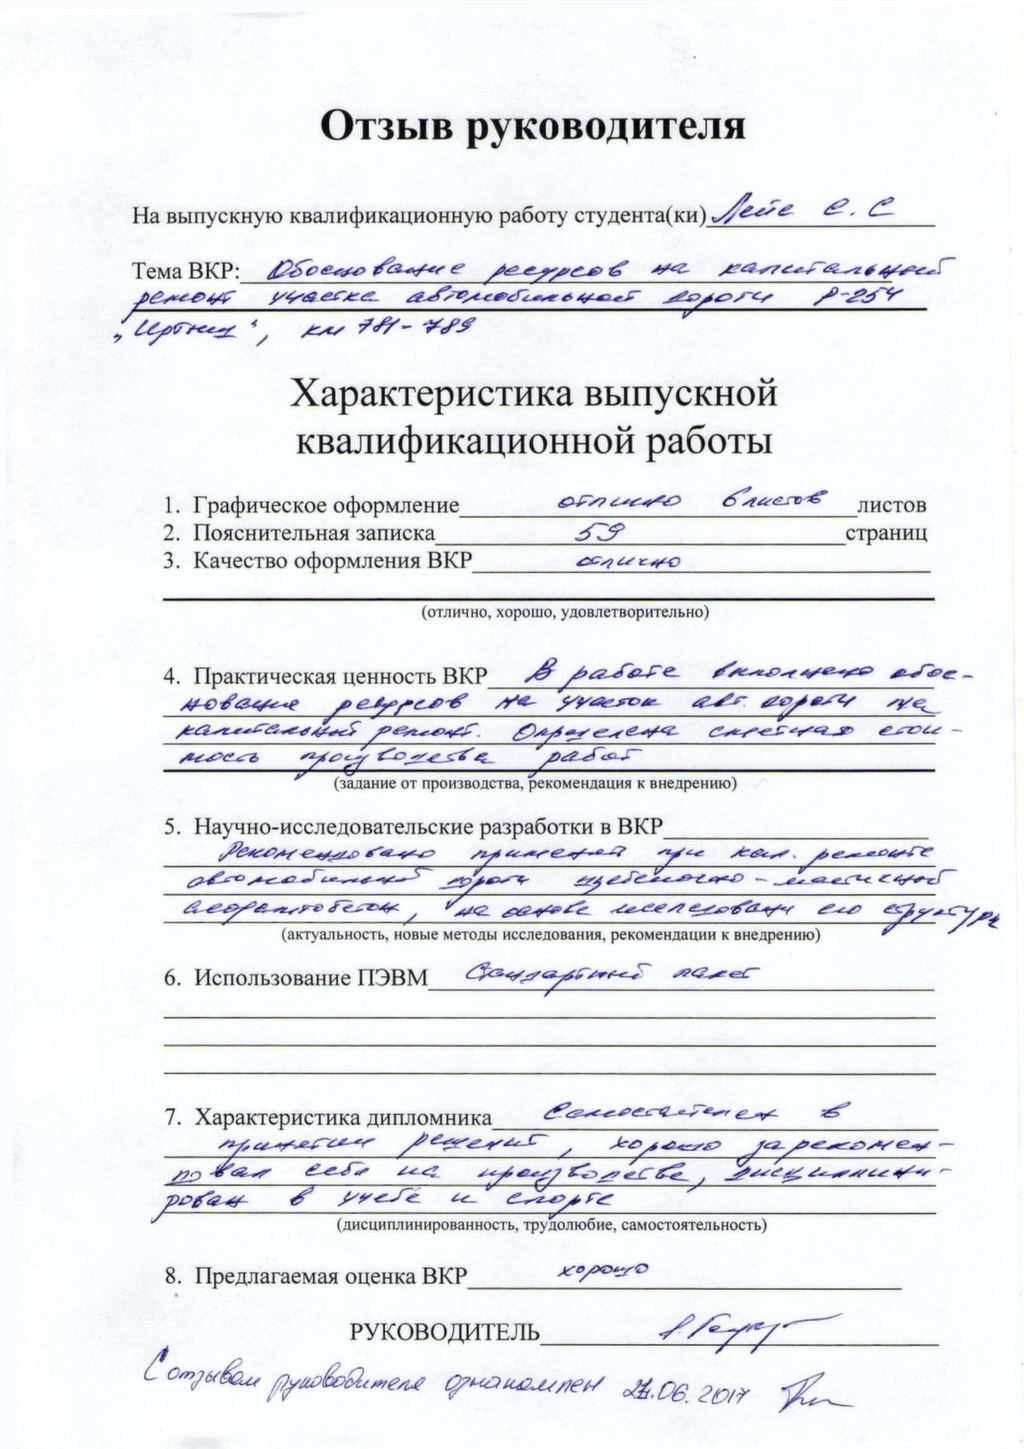 Отзыв руководителя
На выпускную квалификационную работу студента(ки) Лейс С. С
Тема ВКР: Обоснование ресурсов на капитальный
ремонт участка автомобильной дороги Р-254
"Иртыш", км 781-789
Характеристика выпускной
квалификационной работы
1. Графическое оформление отлично 6 листов листов
2. Пояснительная записка 59 страниц
3. Качество оформления ВКР отлично
(отлично, хорошо, удовлетворительно)
4. Практическая ценность ВКР В работе выполнено обос-
нование ресурсов на участок авт. дороги на
капитальный ремонт. Определена сметная стои-
мость производства работ
(задание от производства, рекомендация к внедрению)
5. Научно-исследовательские разработки в ВКР
Рекомендовано при кап. ремонте
автомобильной дороги щебеночно-мастичный
асфальтобетон, на основе исследования его структуры
(актуальность, новые методы исследования, рекомендации к внедрению)
6. Использование ПЭВМ Стандартный пакет
7. Характеристика дипломника Самостоятелен в
принятии решений, хорошо зарекомен-
довал себя на производстве, дисциплини-
рован в учебе и спорте
(дисциплинированность, трудолюбие, самостоятельность)
8. Предлагаемая оценка ВКР хорошо
РУКОВОДИТЕЛЬ
С отзывом руководителя ознакомлен .06.2017